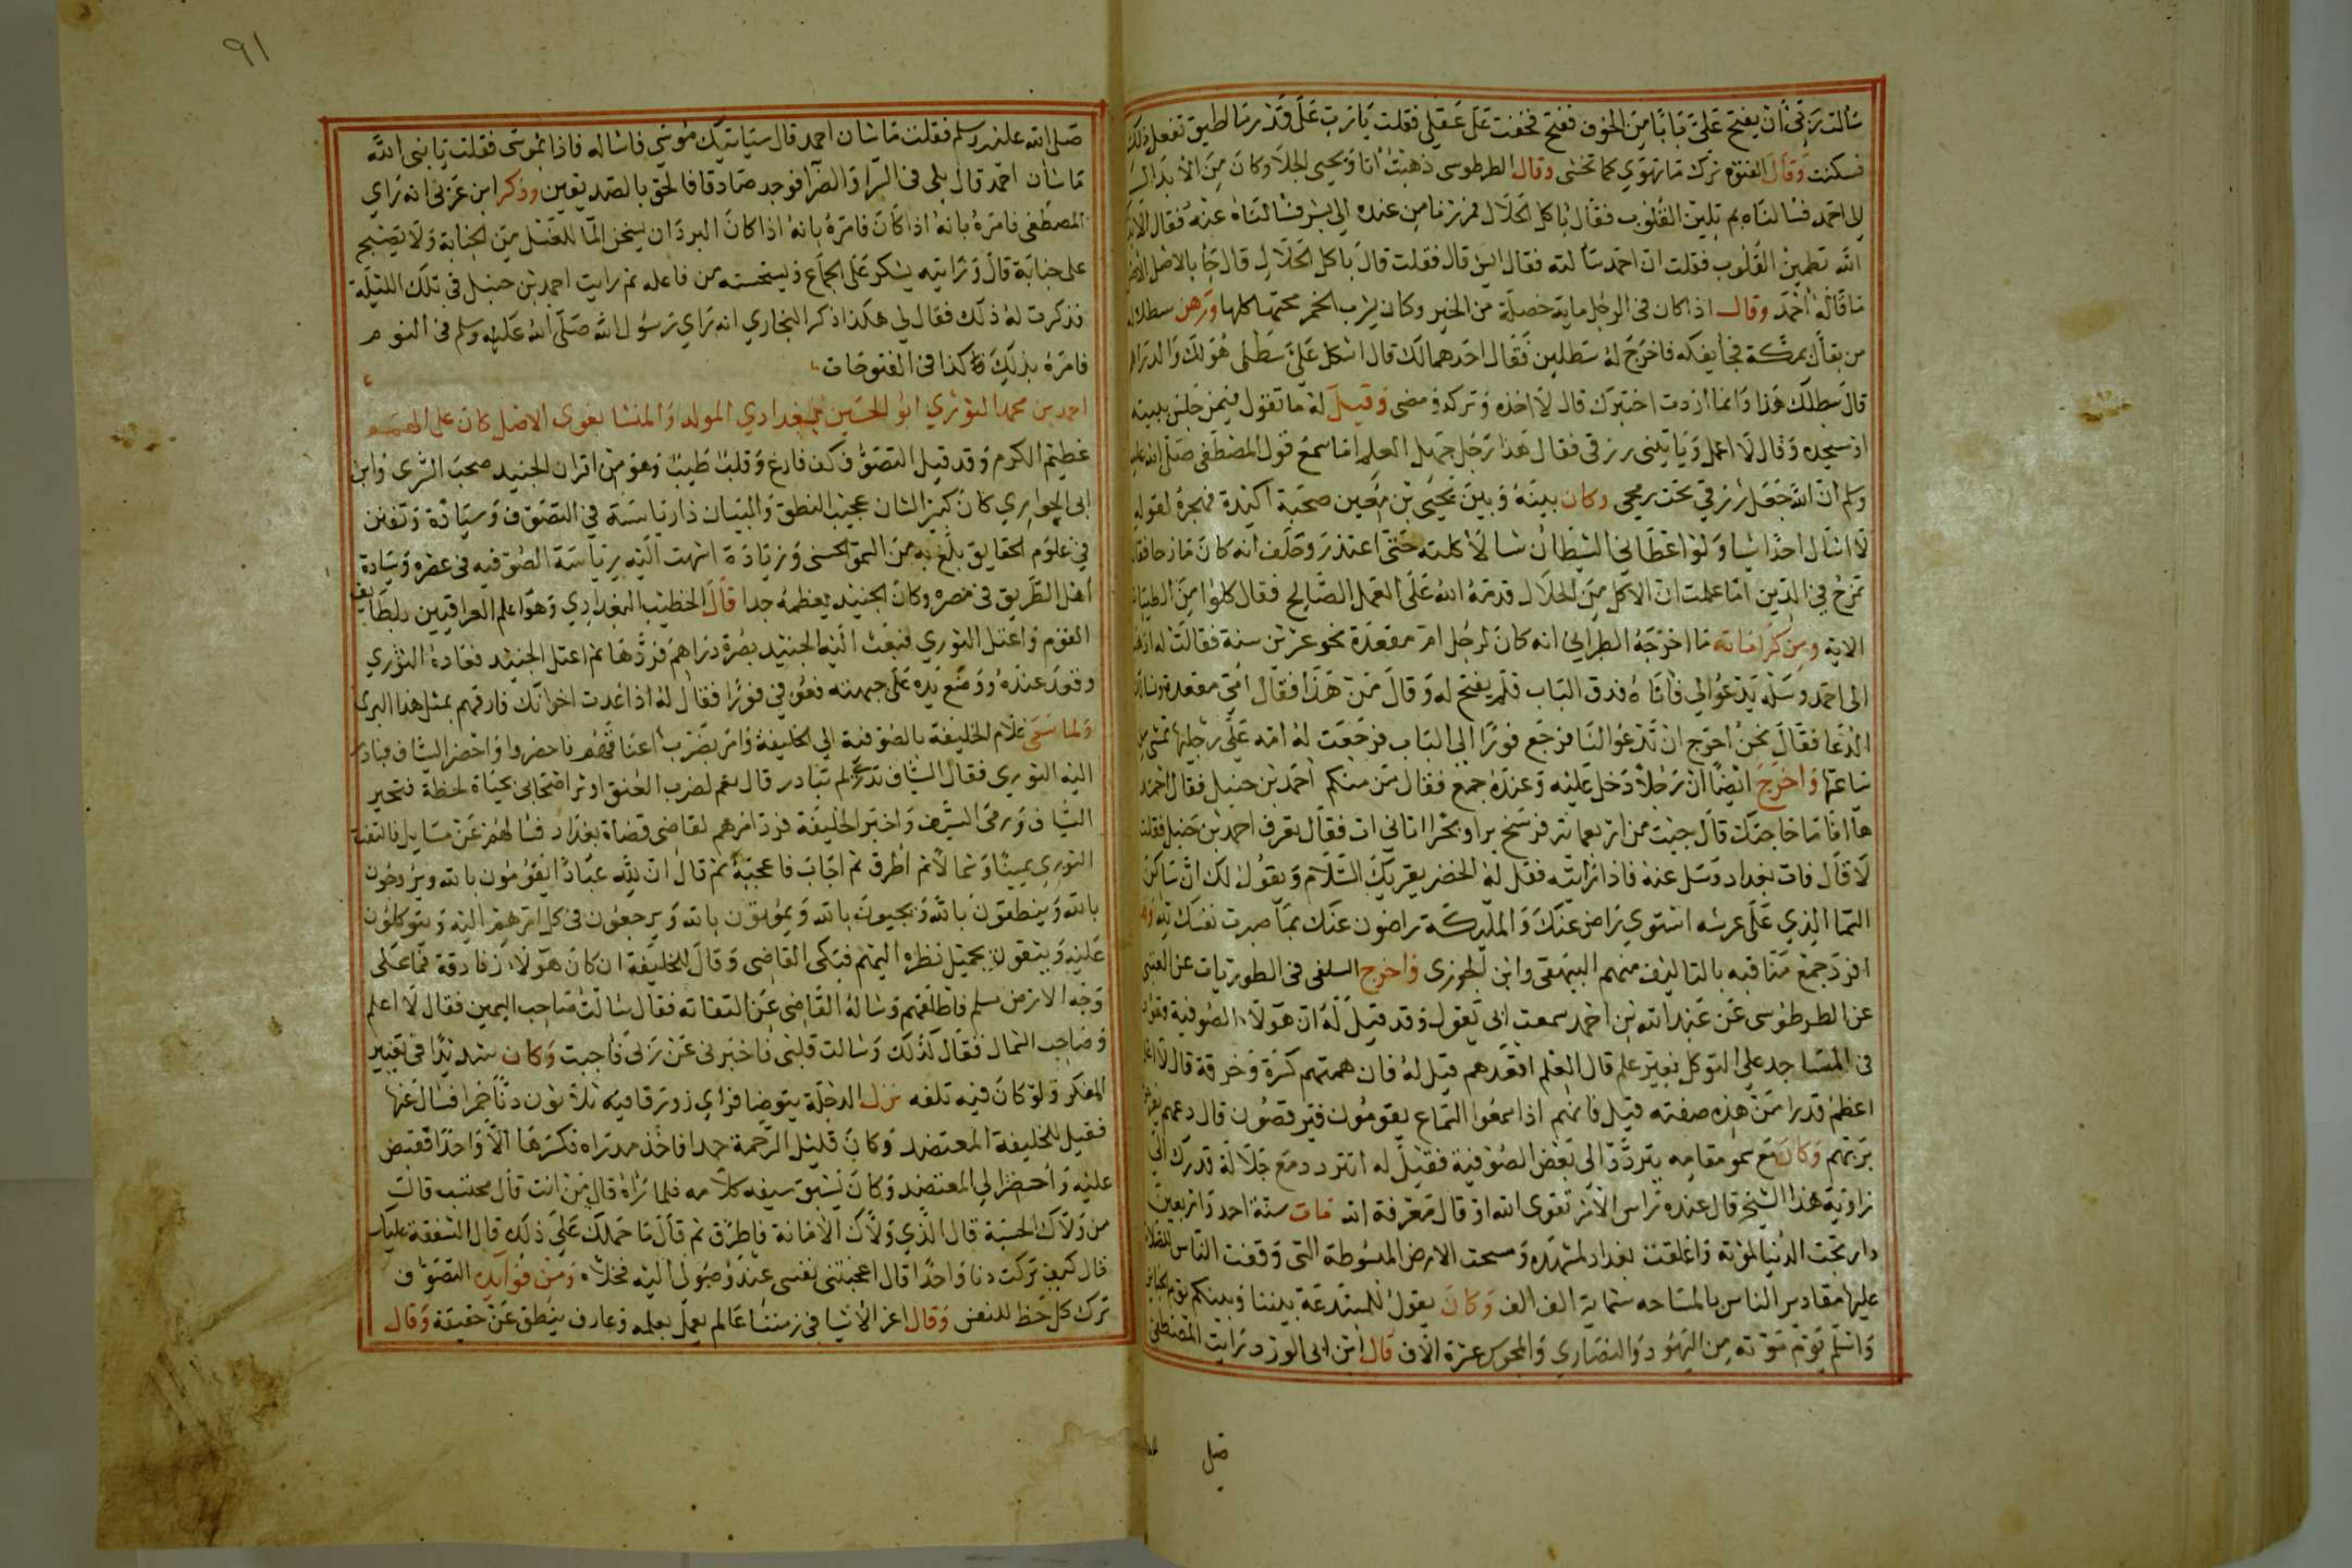 سالت ربى أن يفتح علىّ بابا من الخوف ففتح فخفت على عقلى فقلت يا رب على قدر ما اطيق تفعل ذلك
فسكنت وقال الفتوة ترك ما تهوي لما تخشى وقال الطرطوسى ذهبت انا ويحيى الجلا وكان من الابدال
لاحمد فسالناه بم تلين القلوب فقال باكل الحلال فمررنا من عنده الى بشر فسالناه عنه فقال الا بذكر
الله تطمين القلوب فقلت ان احمد سالته فقال ايش قال فقلت قال باكل الحلال قال جا بالاصل الاصل
ما قاله احمد وقال اذا كان فى الرجل ماية خصلة من الخير وكان يشرب الخمر محتها كلها ورهن سطلا له
من بقال بمكة فجا يفكه فاخرج له سطلين فقال احدهما لك قال اشكل علىّ سطلى هو لك والدراهم
قال سطلك هذا وانما اردت اختبرك قال لا اخذه وتركه ومضى وقيل له ما تقول فيمن جلس ببيته
او مسجده وقال لا اعمل وياتينى رزقى فقال هذا رجل جهل العلم اما سمع قول المصطفى صلى الله عليه
وسلم ان الله جعل رزقي تحت رمحى وكان بينه وبين يحيى بن معين صحبة اكيدة فهجره لقوله
لا اسال احدا شيا ولو اعطانى الشيطان شيا لاكلته حتى اعتذر وحلف انه كان مازحا فقال
تمزح في الدين اما علمت ان الاكل من الحلال قدمه الله على العمل الصالح فقال كلوا من الطيبات
الاية ومن كراماته ما اخرجه الطبرانى انه كان لرجل ام مقعدة نحو عشرين سنة فقالت له اذهب
الى احمد وسله يدعو الي فاتاه فدق الباب فلم يفتح له وقال من هذا فقال امى مقعدة وسالت
الدعا فقال نحن احوج ان تدعو النا فرجع فورا الى الباب فخرجت له امه على رجليها تمشى من
ساعتها واخرج ايضا ان رجلا دخل عليه وعنده جمع فقال من منكم احمد بن حنبل فقال احمد
ها انا ما حاجتك قال جيت من اربعماية فرسخ برا وبحرا اتانى ات فقال تعرف احمد بن حنبل فقلت
لا قال فات بغداد وسل عنه فاذا رايته فقل له الخضر يقريك السلام ويقول لك ان ساكن
السما الذي على عرشه استوي راض عنك والمليكة راضون عنك بما صبرت نفسك لله وقد
افرد جمع مناقبه بالتاليف منهم البيهقى وابن الجوزى واخرج السلفى فى الطوريات عن القيسى
عن الطرطوسى عن عبد الله بن احمد سمعت ابى يقول وقد قيل له ان هولا الصوفية قعود
فى المساجد على التوكل بغير علم قال العلم اقعدهم قيل له فان همتهم كسرة وخرقة قال لا اعلم
اعظم قدرا ممن هذه صفته قيل فانهم اذا سمعوا السماع يقومون فيرقصون قال دعهم يفرحوا
بربهم وكان مع سمو مقامه يتردد الى بعض الصوفية فقيل له اتتردد مع جلالة قدرك الى
زاوية هذا الشيخ قال عنده راس الامر تقوى الله او قال معرفة الله مات سنة احد واربعين
دارتجت الدنيا لموته واغلقت بغداد لمشهده ومسحت الارض المبسوطة التى وقفت الناس للصلاة
عليها مقادير الناس بالمساحه ستماية الف الف وكان يقول للمبتدعة بيننا وبينكم يوم الجنايز
واسلم يوم موته من اليهود والنصاري والمجوس عشرة الاف قال ابن ابى الورد رايت المصطفى
صلى
٩١
صلى الله عليه وسلم فقلت ما شان احمد قال سياتيك موسي فاساله فاذا بموسى فقلت يا بنى الله
ما شان احمد قال بلى فى السرا والضرا فوجد صادقا فالحق بالصديقين وذكر ابن عربى انه راي
المصطفى فامره بانه اذا كان فامره بانه اذا كان البرد ان يسخن الما للغسل من الجنابة ولا يصبح
على جنابة قال ورايته يشكر على الجماع ويستحسنه من فاعله ثم رايت احمد بن حنبل فى تلك الليلة
فذكرت له ذلك فقال لى هكذا ذكر البخاري انه راي رسول الله صلى الله عليه وسلم فى النوم
فامره بذلك كذا فى الفتوحات
احمد بن محمد النوري ابو الحسين بغدادي المولد والمنشا بغوى الاصل كان على الهمم
عظيم الكرم وقد قيل التصوف كف فارغ وقلب طيب وهو من اقران الجنيد صحب السرى وابن
ابى الحواري كان كبير الشان عجيب النطق والبيان ذا رياسة في التصوف وسيادة وتفنن
في علوم الحقايق بلغ به من السمو الحسنى وزيادة انتهت اليه رياسة الصوفيه فى عصره وسيادة
اهل الطريق فى مصره وكان الجنيد يعظمه جدا قال الخطيب البغدادي وهو اعلم العراقيين بلطايف
القوم واعتل النوري فبعث اليه الجنيد بصرة دراهم فردها ثم اعتل الجنيد فعاده النوري
وقعد عنده ووضع يده على جبهته فعوفي فورا فقال له اذا عدت اخوانك فارفقهم بمثل هذا البر
ولما سعى غلام الخليفة بالصوفية الى الخليفة وامر بضرب اعناقهم فاحضروا واحضر السياف فبادر
اليه النوري فقال السياف تدرى لم تبادر قال نعم لضرب العنق اوثر اصحابى بحياة لحظة فتحير
السياف ورمى السيف واخبر الخليفة فرد امرهم لقاضى قضاة بغداد فسالهم عن مسايل فالتفت
النوري يمينا وشمالا ثم اطرق ثم اجاب فاعجبه ثم قال ان لله عبادا يقومون بالله ويروحون
بالله وينطقون بالله ويحيون بالله ويموتون بالله ويرجعون فى كل امرهم اليه ويتوكلون
عليه ويتبعون بجميل نظره اليهم فبكى القاضى وقال للخليفة ان كان هولا زنادقة فما على
وجه الارض مسلم فاطلقهم وساله القاضى عن التفاته فقال سالت صاحب اليمين فقال لا اعلم
وصاحب الشمال فقال كذلك وسالت قلبى فاخبرنى عن ربى فاجبت وكان شديدا فى تغيير
المنكر ولو كان فيه تلفه نزل الدجلة يتوضا فراي زورقا فيه ثلاثون دنا خمرا فسال عنها
فقيل للخليفة المعتضد وكان قليل الرحمة جدا فاخذ مدراه فكسرها الا واحدا فقبض
عليه واحضر الى المعتضد وكان يسبق سيفه كلامه فلما راه قال من انت قال محتسب قال
من ولاك الحسبة قال الذي ولاك الامانة فاطرق ثم قال ما حملك على ذلك قال الشفقة عليك
قال كيف تركت دنا واحدا قال اعجبتنى نفسى عند وصولى اليه فخلاه ومن فوايده التصوف
ترك كل حظ للنفس وقال اعز الاشيا فى زمننا عالم يعمل بعلمه وعارف ينطق عن حقيقة وقال